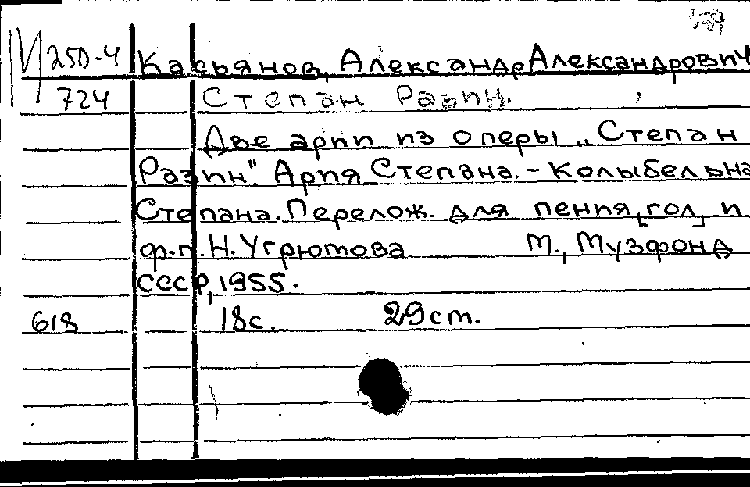 М 250-4 Касьянов, Александр Александрович
724 Степан Разин.
Две арии из оперы „Степан
Разин". Ария Степана. - Колыбельна
Степана. Перелож. для пения [гол] и
ф.-п. Н. Угрюмова М., Музфонд
СССР, 1955.
618 18с. 29 см.